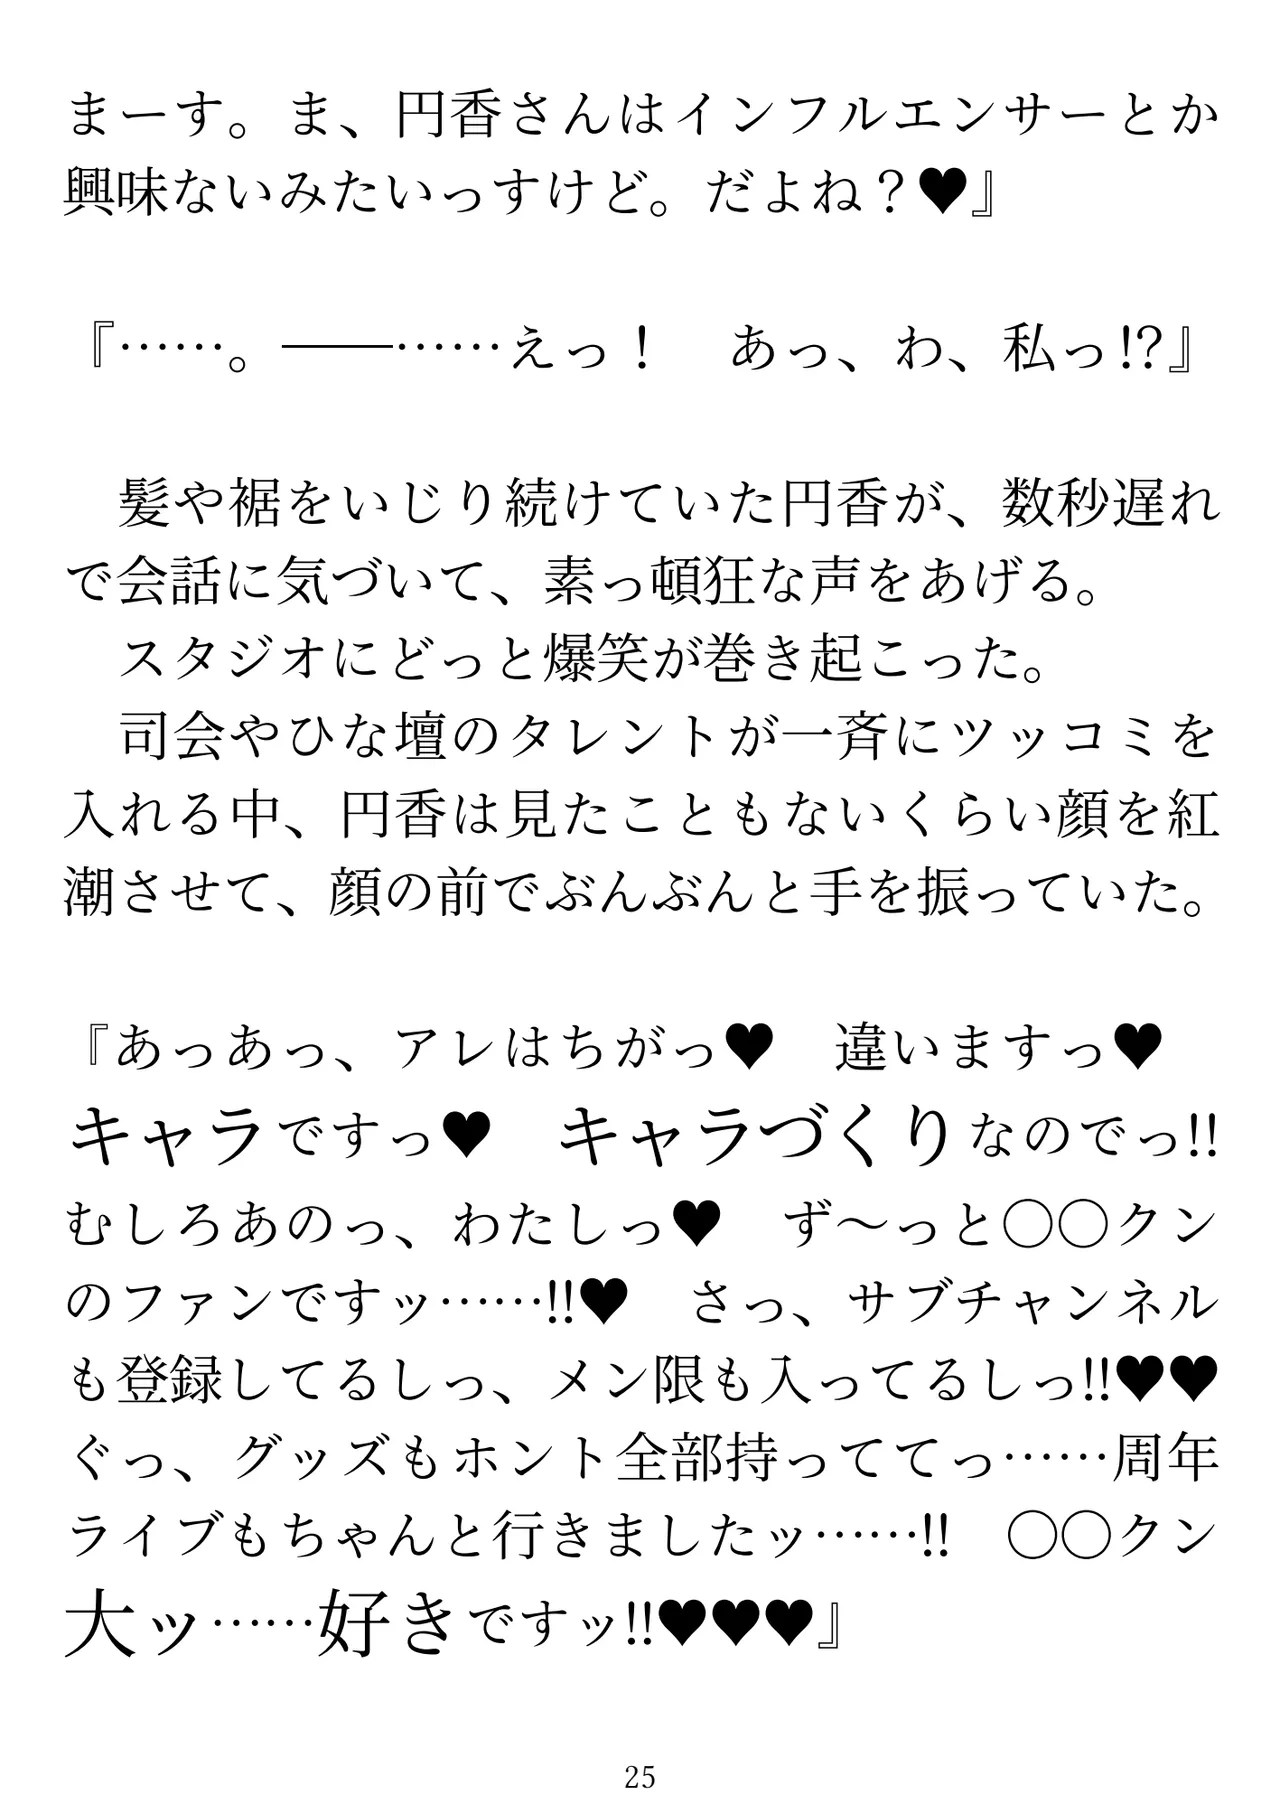 まーす。ま、円香さんはインフルエンサーとか
興味ないみたいっすけど。だよね？♥』
『……。――……えっ！　あっ、わ、私っ!?』
　髪や裾をいじり続けていた円香が、数秒遅れ
で会話に気づいて、素っ頓狂な声をあげる。
　スタジオにどっと爆笑が巻き起こった。
　司会やひな壇のタレントが一斉にツッコミを
入れる中、円香は見たこともないくらい顔を紅
潮させて、顔の前でぶんぶんと手を振っていた。
『あっあっ、アレはちがっ♥　違いますっ♥
キャラですっ♥　キャラづくりなのでっ!!
むしろあのっ、わたしっ♥　ず～っと◯◯クン
のファンですッ……!!♥　さっ、サブチャンネル
も登録してるしっ、メン限も入ってるしっ!!♥♥
ぐっ、グッズもホント全部持っててっ……周年
ライブもちゃんと行きましたッ……!!　◯◯クン
大ッ……好きですッ!!♥♥♥』
25